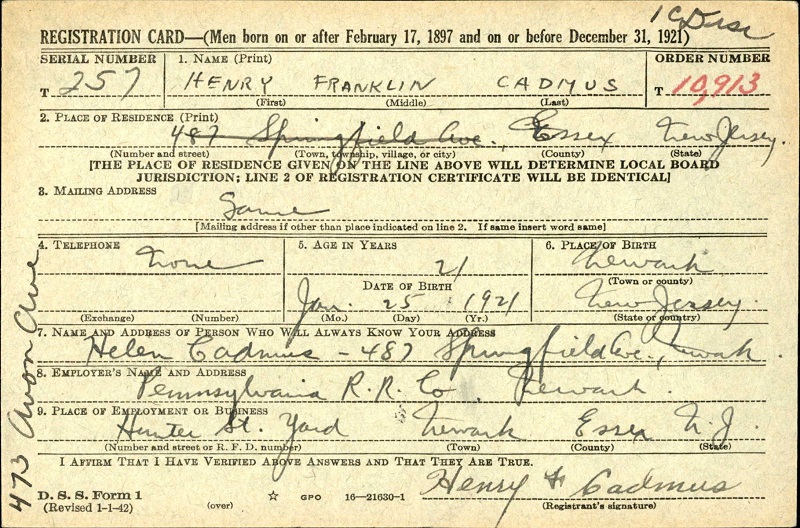 REGISTRATION CARD—(Men born on or after February 17, 1897 and on or before December 31, 1921)
SERIAL NUMBER 1. NAME (Print) ORDER NUMBER
T 257 HENRY FRANKLIN CADMUS T 10,913
(First) (Middle) (Last)
2. PLACE OF RESIDENCE (Print)
487 Springfield Ave., Essex New Jersey.
(Number and street) (Town, township, village, or city) (County) (State)
[THE PLACE OF RESIDENCE GIVEN ON THE LINE ABOVE WILL DETERMINE LOCAL BOARD
JURISDICTION; LINE 2 OF REGISTRATION CERTIFICATE WILL BE IDENTICAL]
3. MAILING ADDRESS
Same
[Mailing address if other than place indicated on line 2. If same insert word same]
4. TELEPHONE 5. AGE IN YEARS 6. PLACE OF BIRTH
None 21 Newark
DATE OF BIRTH (Town or county)
Jan. 25 1921 New Jersey.
(Exchange) (Number) (Mo.) (Day) (Yr.) (State or country)
7. NAME AND ADDRESS OF PERSON WHO WILL ALWAYS KNOW YOUR ADDRESS
Helen Cadmus - 487 Springfield Ave., Newark.
8. EMPLOYER'S NAME AND ADDRESS
Pennsylvania R.R. Co. Newark
9. PLACE OF EMPLOYMENT OR BUSINESS
Hunter St. Yard Newark Essex N.J.
(Number and street or R. F. D. number) (Town) (County) (State)
I AFFIRM THAT I HAVE VERIFIED ABOVE ANSWERS AND THAT THEY ARE TRUE.
D. S. S. Form 1 Henry F Cadmus
(Revised 1-1-42) (over) ☆ GPO 16—21630-1 (Registrant's signature)
473 Avon Ave